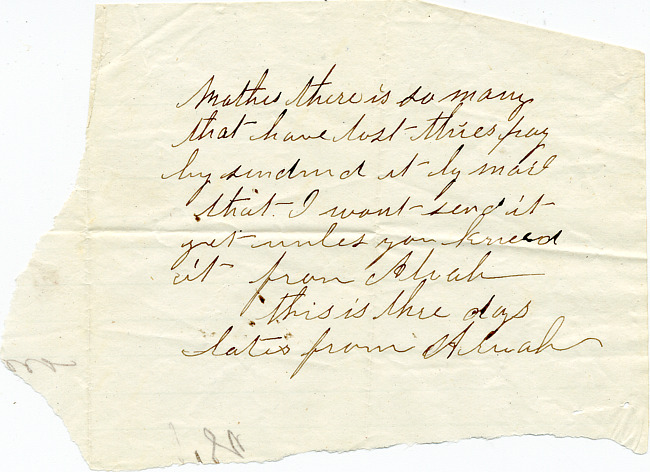 Mother there is so many
that have lost thies pay
by sendind it by mail
that I wont send it
yet unles you kneed
it from Alvah
this is thre days
later from Alvah